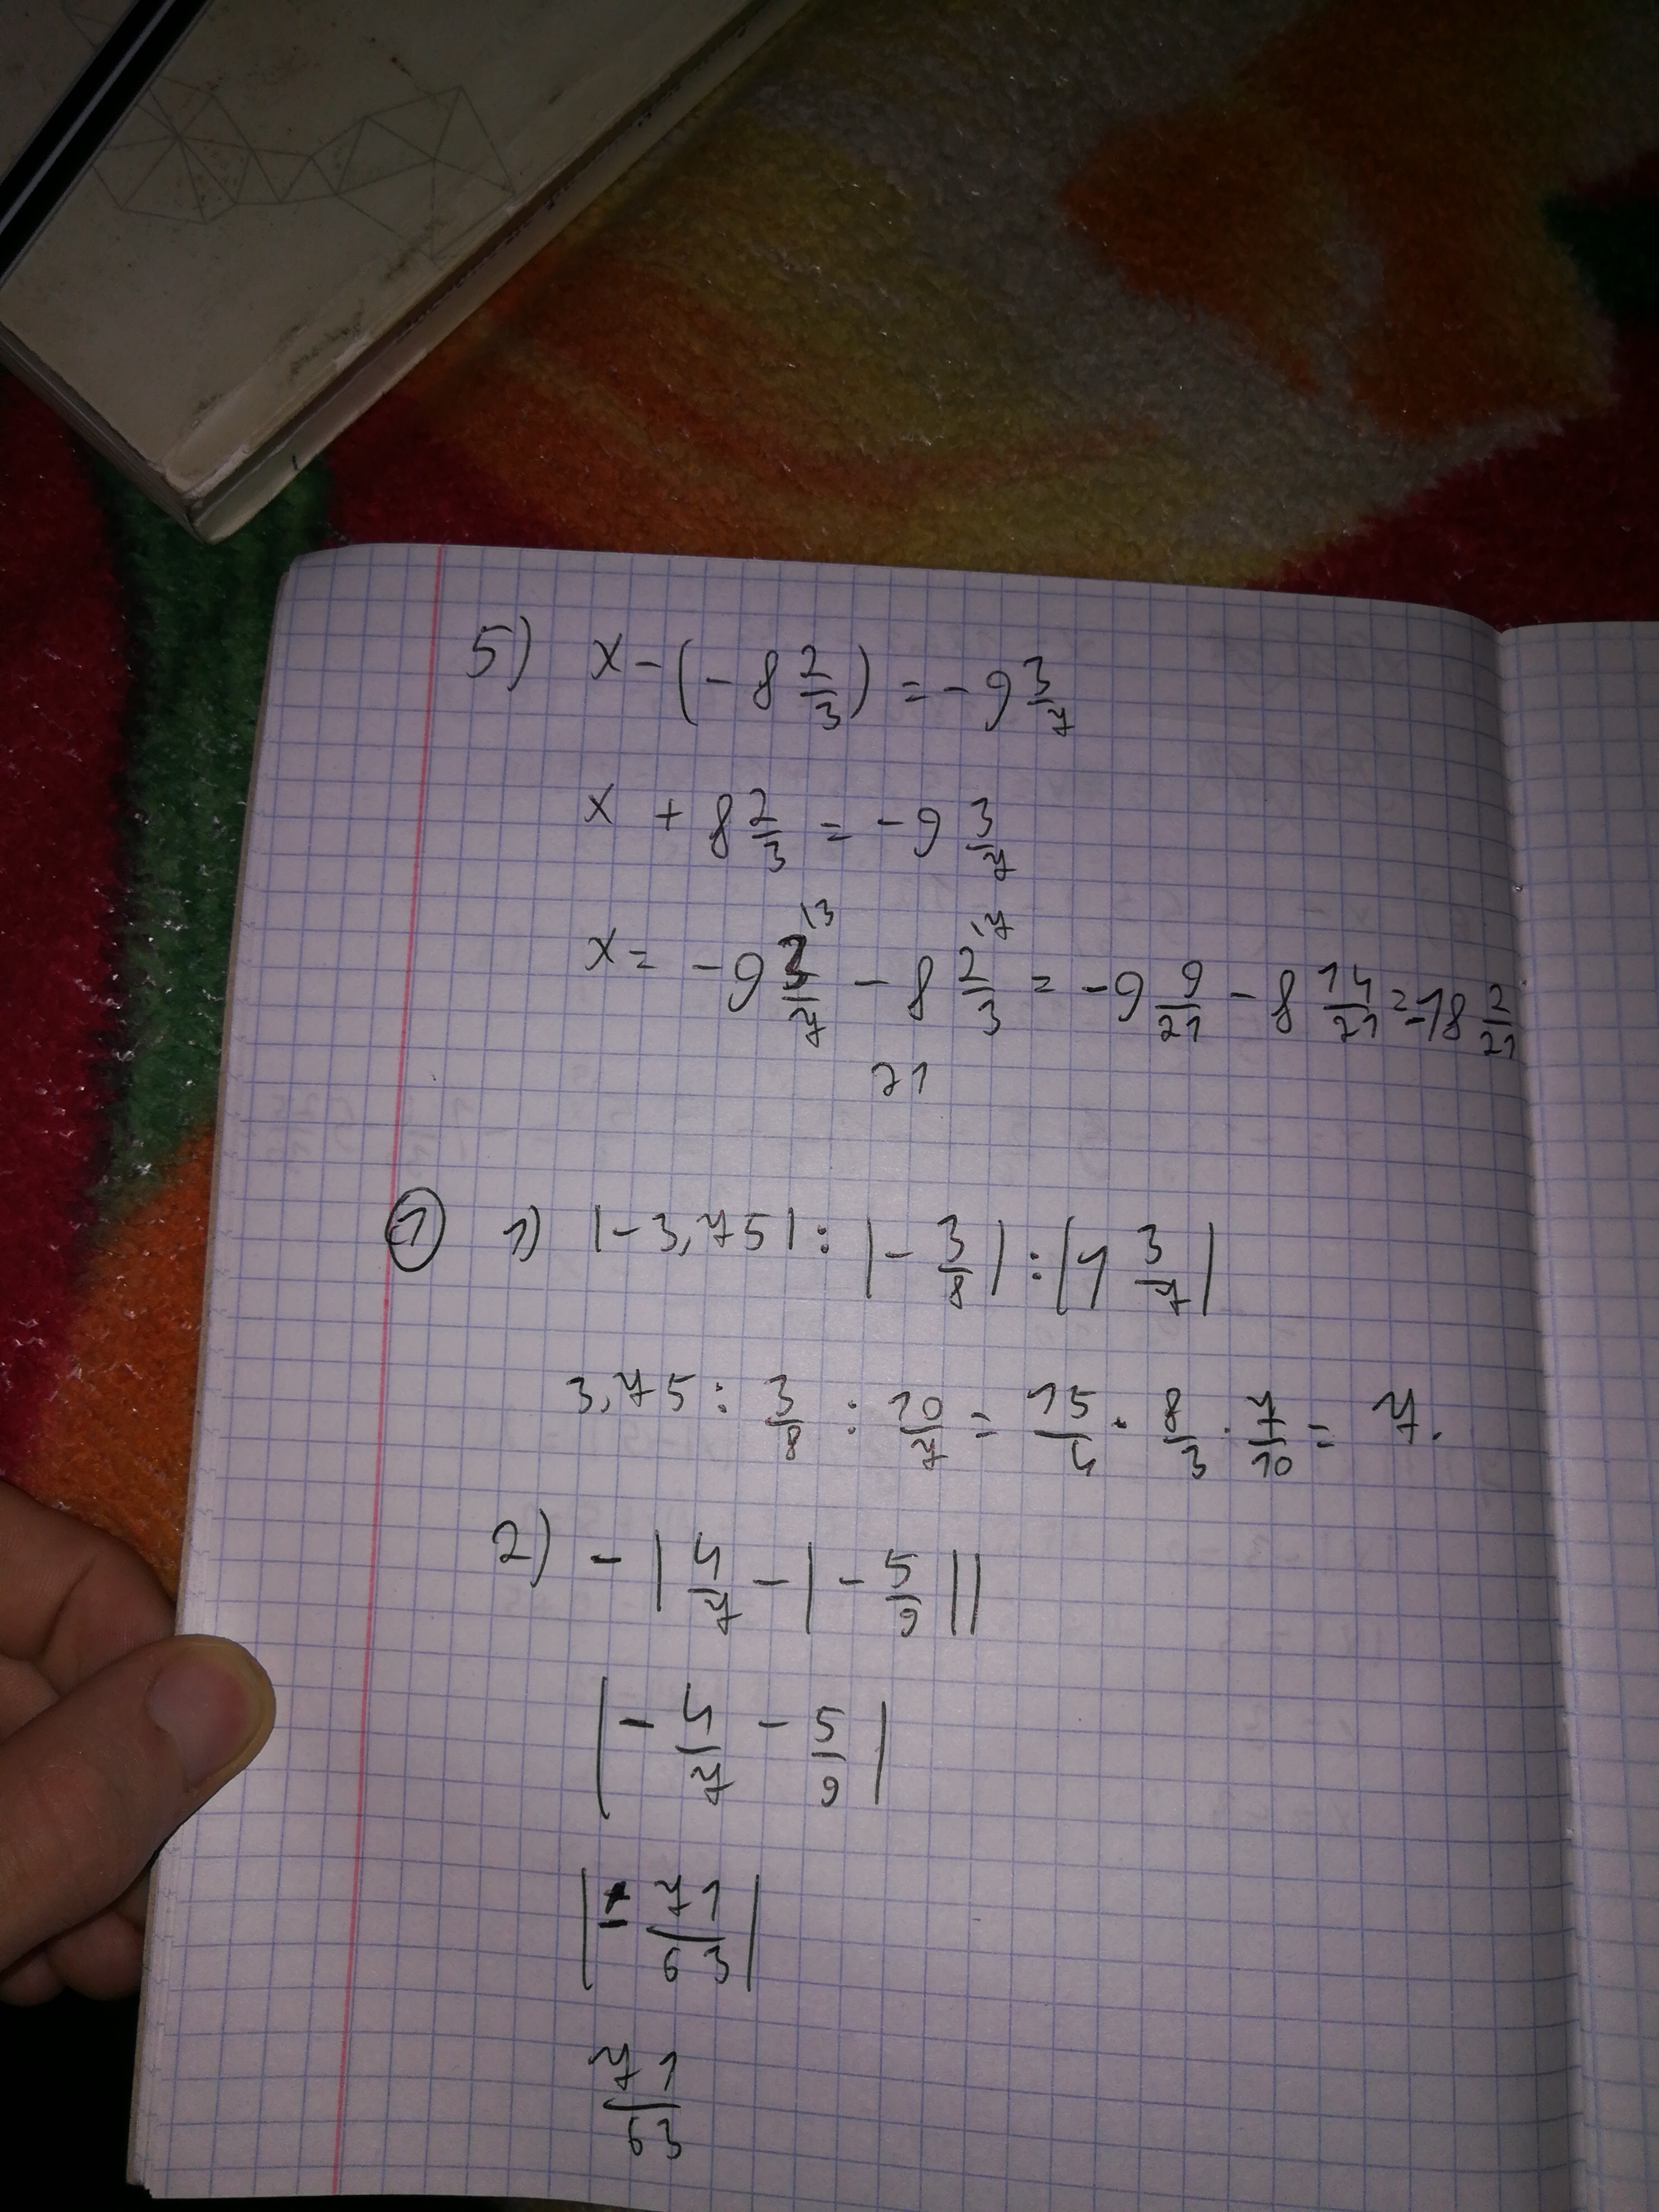 5) x - (-8 2/3) = -9 3/7
x + 8 2/3 = -9 3/7
x = -9 3/7 ^13 - 8 2/3 ^17 = -9 9/21 - 8 14/21 = -18 2/21
21
① 1) |-3,75| : |-3/8| : |1 3/7|
3,75 : 3/8 : 10/7 = 15/4 · 8/3 · 7/10 = 7.
2) - | 4/7 - | - 5/9 ||
| - 4/7 - 5/9 |
| - 71/63 |
71/63